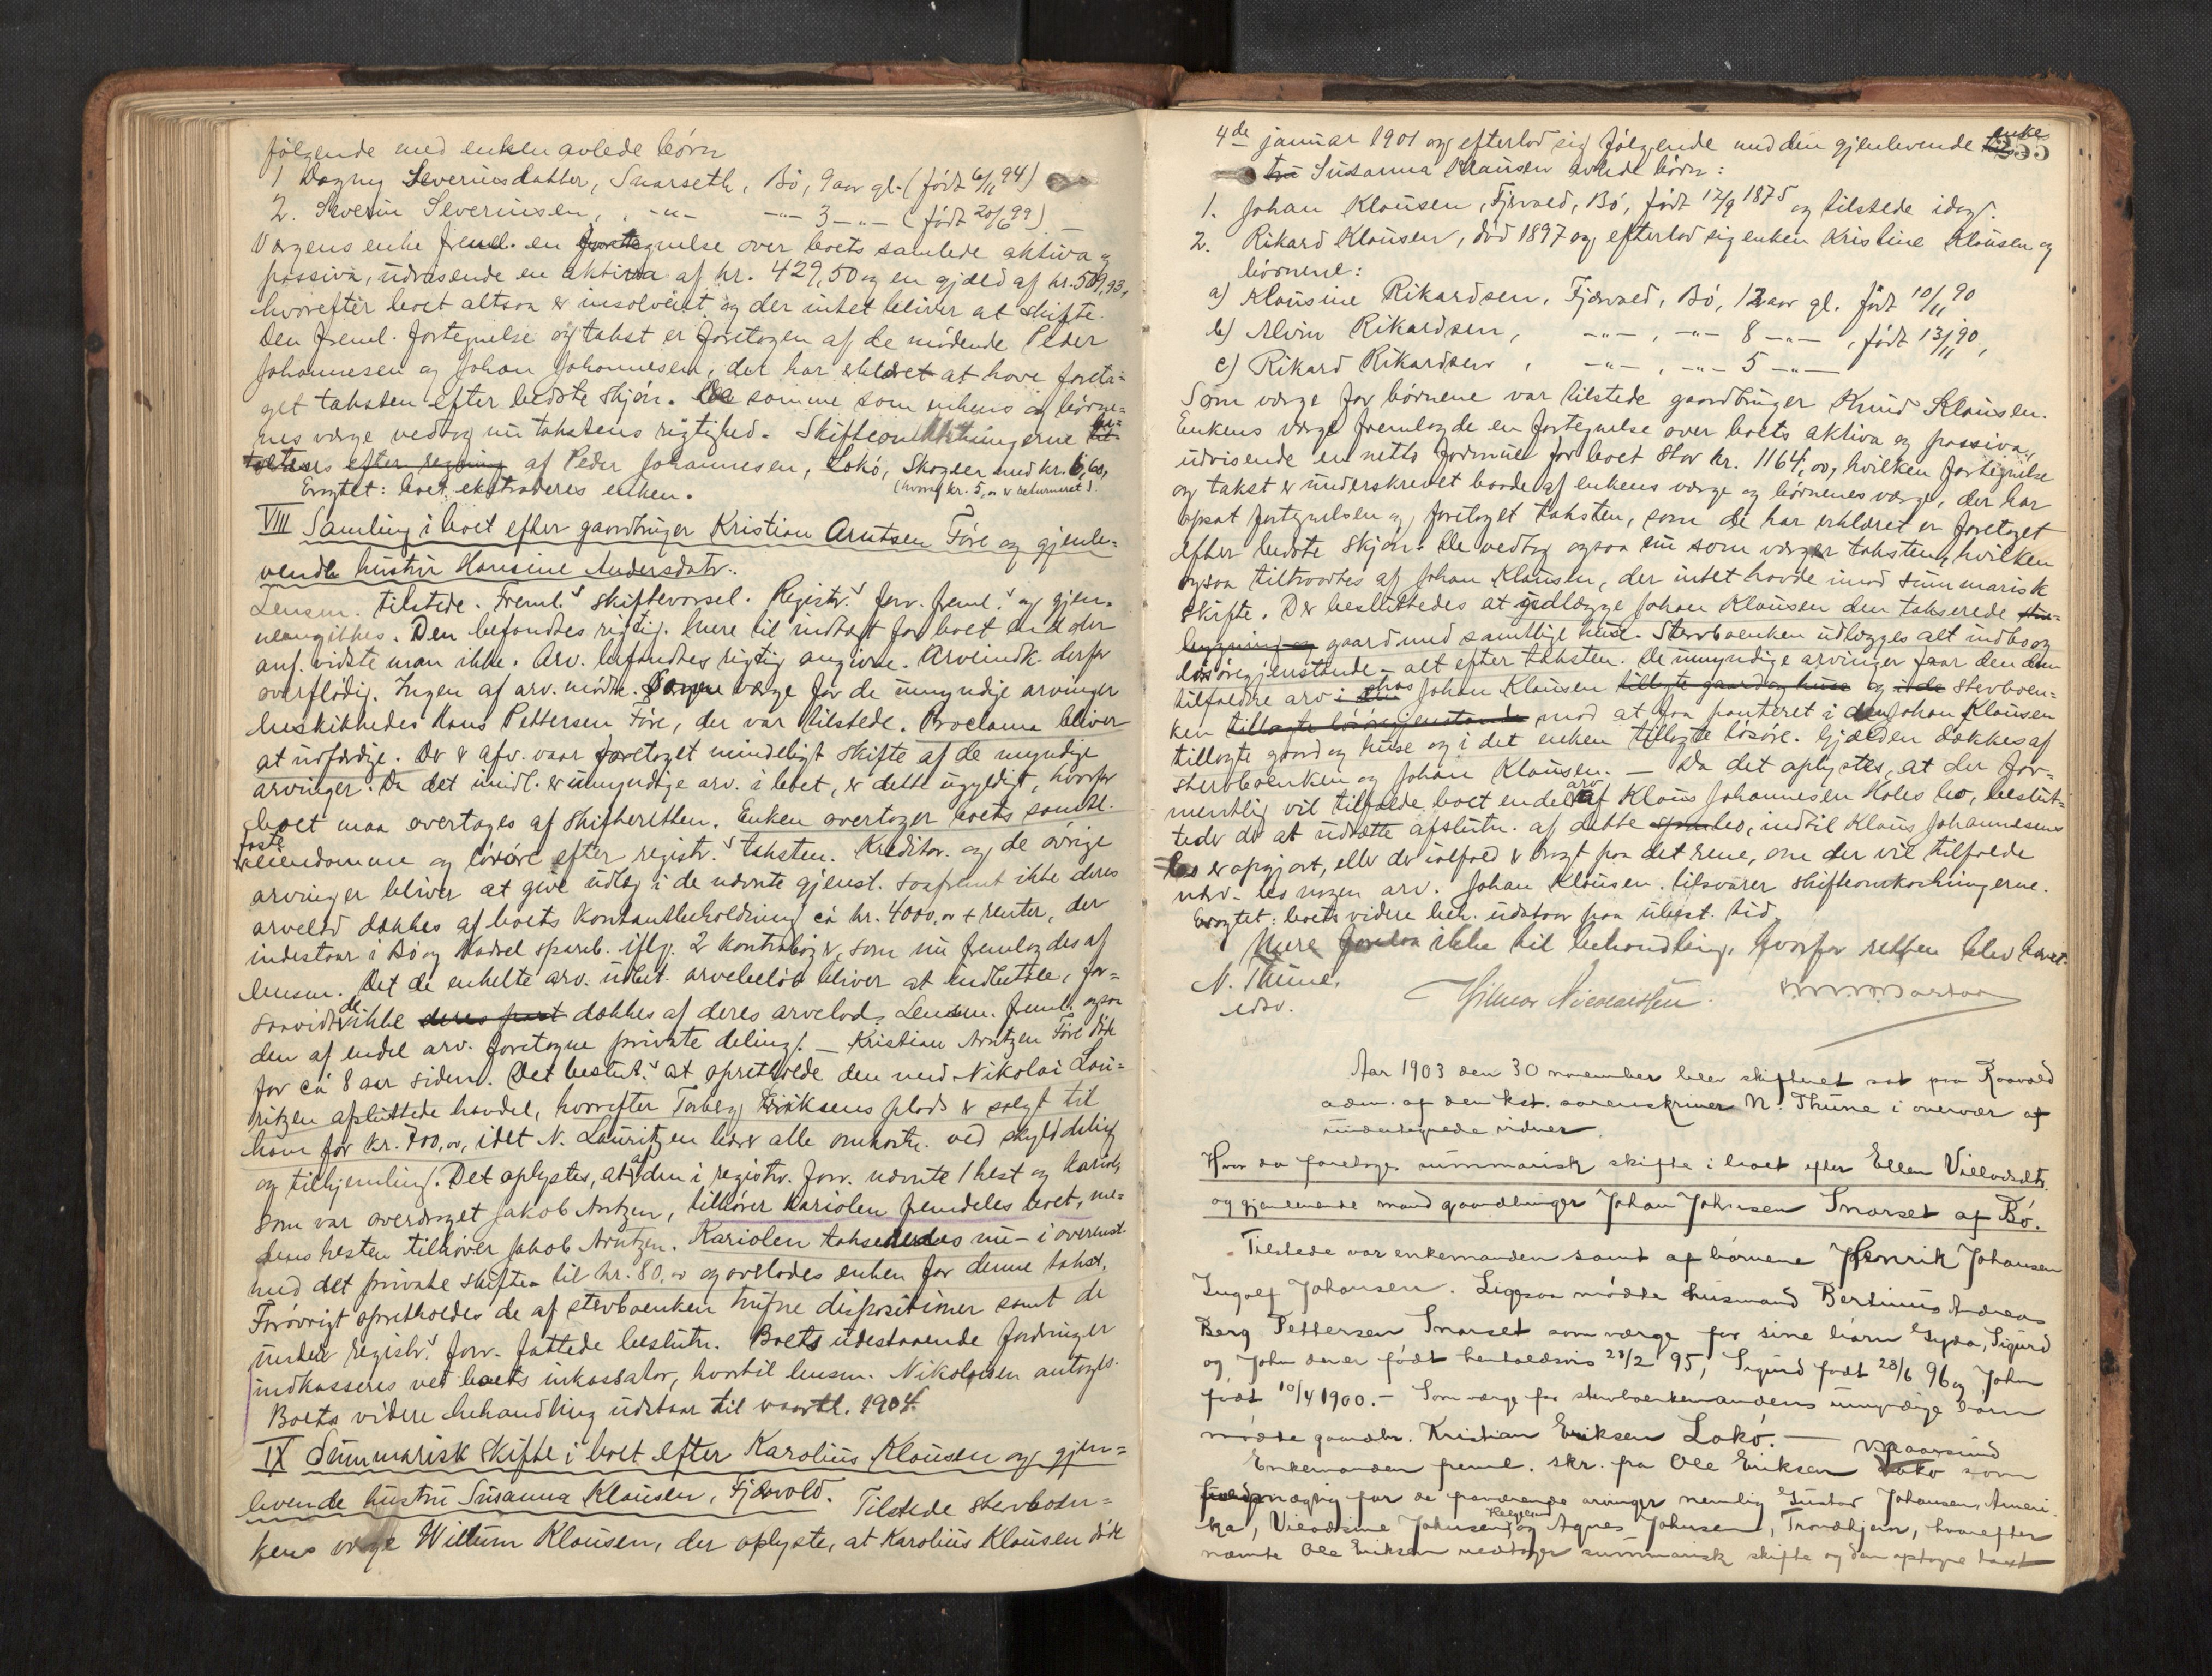 følgende med enken avlede børn
1 Dagny Severinsdatter, Snarseth, Bø, 9 aar gl. (født 6/11 94)
2. Severin Severinsen, -"- -"- 3 -"- (født 20/6 99). —
Værgens enke freml. en fortegnelse over boets samlede aktiva og
passiva, udvisende en aktiva af kr. 429,50 og en gjæld af kr. 509,93,
hvorefter boet altsaa er insolvent og der intet bliver at skifte.
Den freml. fortegnelse og takst er foretagen af de mødende Peder
Johannesen og Johan Johannesen, der har erklæret at have foreta-
get taksten efter bedste skjøn. De samme som enkens og børne-
nes værge vedtog nu takstens rigtighed. Skifteomkostningerne
efter regning af Peder Johannesen, Lokø, Skogsø med kr. 6,60,
(hvoraf kr. 5,00 er returneret).
Eragtet: boet extraderes enken.
VIII Samling i boet efter gaardbruger Kristian Arntsen Føre og gjenle-
vende hustru Hansine Andersdatr.
Lensm. tilstede. Freml.s skiftevarsel. Registr.s forr. freml.s og gjen-
nemgikkes. Den befandtes rigtig. Mere til indtægt for boet end der
anf. vidste man ikke. Arv. befandtes rigtig angivne. Arveindk. derfor
overflødig. Ingen af arv. mødte. Som værge for de umyndige arvinger
beskikkedes Hans Pettersen Føre, der var tilstede. Proclama bliver
at udfærdige. Der er afv. vaar foretaget mindeligt skifte af de myndige
arvinger. Da det imidl. er umyndige arv. i boet, er dette ugyldigt, hvorfor
boet maa overtages af skifteretten. Enken overtager boets samtl.
faste
eiendomme og løsøre efter registr.s taksten. Kreditor. og de øvrige
arvinger bliver at give udlæg i de nævnte gjenst. saafremt ikke deres
arvelod dækkes af boets kontantbeholdning ca kr. 4000,00 + renter, der
indestaar i Bø og Hadsel spareb. iflg. 2 kontrabøger, som nu fremlagdes af
lensm. Det de enkelte arv. udbet. arvebeløb bliver at indbetale, for-
saavidt de ikke deres part dækkes af deres arvelod. Lensm. freml. ogsaa
den af endel arv. foretagne private deling. — Kristian Arntzen Føre døde
for ca 8 aar siden. Det beslut.s at opretholde den med Nikolai Lau-
ritzen afsluttede handel, hvorefter Torberg Eriksens plads er solgt til
ham for kr. 700,00, idet N. Lauritzen bærer alle omkostn. ved skylddeling
og tilhjemling. Det oplystes, at af den i registr. forr. nævnte 1 hest og kariol,
som var overdraget Jakob Arntzen, tilhører kariolen fremdeles boet, me-
dens hesten tilhører Jakob Arntzen. Kariolen takseredes nu — i overenst.
med det private skifte — til kr. 80,00 og overlodes enken for denne takst.
Forøvrigt opretholdes de af stervboenken trufne dispositioner samt de
under registr.s forr. fattede beslutn. Boets udestaaende fordringer
indkasseres ved boets inkassator, hvortil lensm. Nikolaisen antoges.
Boets videre behandling udstaar til vaartl. 1904.
IX Summarisk skifte i boet efter Karolius Klausen og gjen-
levende hustru Susanna Klausen, Fjærvold. Tilstede stervboen-
kens værge Willum Klausen, der oplyste, at Karolius Klausen døde
255
4de januar 1901 og efterlod sig følgende med den gjenlevende enke
Susanna Klausen avlede børn:
1. Johan Klausen, Fjærvold, Bø, født 17/9 1875 og tilstede idag.
2. Rikard Klausen, død 1897 og efterlod sig enken Kristine Klausen og
børnene:
a) Klausine Rikardsen, Fjærvold, Bø, 12 aar gl. født 10/11 90
b) Alvin Rikardsen, -"- , -"- 8 -"- , født 13/11 90,
c) Rikard Rikardsen, -"- , -"- 5 -"-
Som værge for børnene var tilstede gaardbruger Knud Klausen.
Enkens værge fremlagde en fortegnelse over boets aktiva og passiva,
udvisende en netto formue for boet stor kr. 1164,00, hvilken fortegnelse
og takst er underskrevet baade af enkens værge og børnenes værge, der har
opsat fortegnelsen og foretaget taksten, som de har erklæret er foretaget
efter bedste skjøn. De vedtog ogsaa nu som værger taksten, hvilken
ogsaa tiltraadtes af Johan Klausen, der intet havde imod summarisk
skifte. Der besluttedes at udlægge Johan Klausen den takserede
gaard med samtlige huse. Stervboenken udlægges alt indbo og
løsøregjenstande — alt efter taksten. De umyndige arvinger faar den dem
tilfaldne arv i hos Johan Klausen tillagte gaard og huse og stervboen-
ken tillagte løsøregjenstande mod at faa panteret i den Johan Klausen
tillagte gaard og huse og i det enken tillagte løsøre. Gjælden dækkes af
stervboenken og Johan Klausen. — Da det oplystes, at der for-
mentlig vil tilfalde boet endel arv af Klaus Johannesen Holes bo, beslut-
tedes det at udsætte afslutn. af dette bo, indtil Klaus Johannesens
bo er opgjort, eller det ialfald er bragt paa det rene, om der vil tilfalde
nærv. bo nogen arv. Johan Klausen tilsvarer skifteomkostningerne.
Eragtet: boets videre beh. udstaar paa ubest. tid.
Mere forelaa ikke til behandling, hvorfor retten blev hævet.
N. Thune,
edsv.
Hilmar Nicolaissen.
Aar 1903 den 30 november blev skifteret sat paa Raavold
adm. af den kst. sorenskriver N. Thune i overvær af
undertegnede vidner.
Hvor da foretoges summarisk skifte i boet efter Ellen Villadsdtr.
og gjenlevende mand gaardbruger Johan Johnsen Snarset af Bø.
Tilstede var enkemanden samt af børnene Henrik Johansen
Ingolf Johansen. Ligesaa mødte husmand Bertinus Andreas
Berg Pettersen Snarset som værge for sine børn Gyda, Sigurd
og John der er født henholdsvis 28/2 95, Sigurd født 28/6 96 og John
født 10/4 1900. — Som værge for stervboenkemandens umyndige børn
mødte gaardbr. Kristian Eriksen Lokø. —
Enkemanden freml. skr. fra Ole Eriksen Lokø som
fuldmægtig for de fraværende arvinger nemlig Gustav Johansen, Ameri-
ka, Vilardine Johnsen og Agnes Johnsen, Trondhjem, hvorefter
nævnte Ole Eriksen vedtager summarisk skifte og den optagne taxt